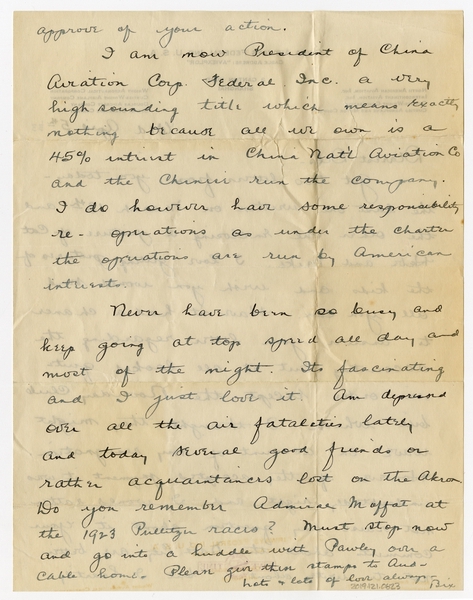 approve of your action.
I am now President of China
Aviation Corp. Federal Inc. a very
high sounding title which means exactly
nothing because all we own is a
45% intrist in China Nat'l Aviation Co
and the Chinese run the company.
I do however have some responsibility
re- operations as under the charter
the operations are run by American
intrests.
Never have been so busy and
keep going at top speed all day and
most of the night. Its fascinating
and I just love it. Am depressed
over all the air fatalities lately
and today several good friends or
rather acquaintances lost on the Akron
Do you remember Admiral Moffat at
the 1923 Pulitzer races? Must stop now
and go into a huddle with Pawley over a
cable home - Please give these stamps to Aud-
Lots & lots of love always -
Bix
2019.21.0623